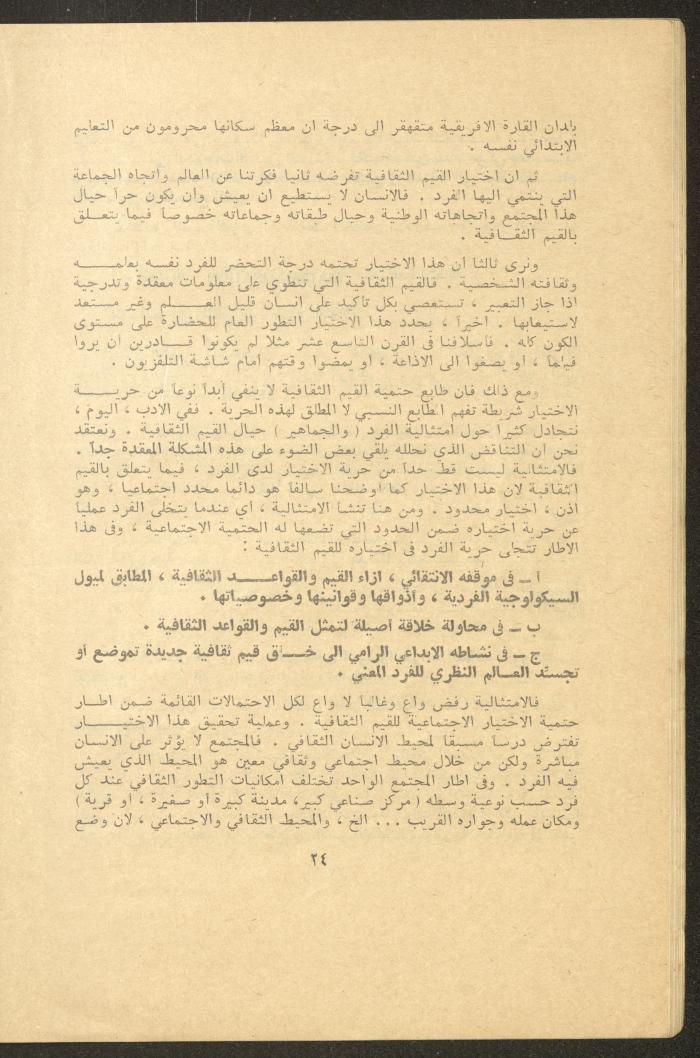 بلدان القارة الافريقية متقهقر الى درجة ان معظم سكانها محرومون من التعليم
الابتدائي نفسه .
ثم ان اختيار القيم الثقافية تفرضه ثانيا فكرتنا عن العالم واتجاه الجماعة
التي ينتمي اليها الفرد . فالانسان لا يستطيع ان يعيش وان يكون حراً حيال
هذا المجتمع واتجاهاته الوطنية وحيال طبقاته وجماعاته خصوصاً فيما يتعلق
بالقيم الثقافية .
ونرى ثالثا ان هذا الاختيار تحتمه درجة التحضر للفرد نفسه بعلمه
وثقافته الشخصية . فالقيم الثقافية التي تنطوي على معلومات معقدة وتدرجية
اذا جاز التعبير ، تستعصي بكل تأكيد على انسان قليل العلم وغير مستعد
لاستيعابها . اخيراً ، يحدد هذا الاختيار التطور العام للحضارة على مستوى
الكون كله . فأسلافنا في القرن التاسع عشر مثلا لم يكونوا قادرين ان يروا
فيلماً ، او يصغوا الى الاذاعة ، او يمضوا وقتهم امام شاشة التلفزيون .
ومع ذلك فان طابع حتمية القيم الثقافية لا ينفي أبداً نوعاً من حرية
الاختيار شريطة تفهم الطابع النسبي لا المطلق لهذه الحرية . ففي الادب ، اليوم ،
نتجادل كثيراً حول امتثالية الفرد ( والجماهير ) حيال القيم الثقافية . ونعتقد
نحن ان التناقض الذي نحلله يلقي بعض الضوء على هذه المشكلة المعقدة جداً .
فالامتثالية ليست قط حداً من حرية الاختيار لدى الفرد ، فيما يتعلق بالقيم
الثقافية لان هذا الاختيار كما اوضحنا سالفاً هو دائما محدد اجتماعيا ، وهو
اذن ، اختيار محدود . ومن هنا تنشأ الامتثالية ، اي عندما يتخلى الفرد عملياً
عن حرية اختياره ضمن الحدود التي تضعها له الحتمية الاجتماعية ، وفى هذا
الاطار تتجلى حرية الفرد في اختياره للقيم الثقافية :
أ ــ في موقفه الانتقائي ، ازاء القيم والقواعد الثقافية ، المطابق لميول
السيكولوجية الفردية ، وأذواقها وقوانينها وخصوصياتها .
ب ــ في محاولة خلاقة أصيلة لتمثل القيم والقواعد الثقافية .
ج ــ في نشاطه الابداعي الرامي الى خلق قيم ثقافية جديدة تموضع أو
تجسّد العالم النظري للفرد المعني .
فالامتثالية رفض واع وغالباً لا واع لكل الاحتمالات القائمة ضمن اطار
حتمية الاختيار الاجتماعية للقيم الثقافية . وعملية تحقيق هذا الاختيار
تفترض درساً مسبقاً لمحيط الانسان الثقافي . فالمجتمع لا يؤثر على الانسان
مباشرة ولكن من خلال محيط اجتماعي وثقافي معين هو المحيط الذي يعيش
فيه الفرد . وفى اطار المجتمع الواحد تختلف امكانيات التطور الثقافي عند كل
فرد حسب نوعية وسطه ( مركز صناعي كبير، مدينة كبيرة او صغيرة ، او قرية )
ومكان عمله وجواره القريب ... الخ ، والمحيط الثقافي والاجتماعي ، لان وضع
٢٤